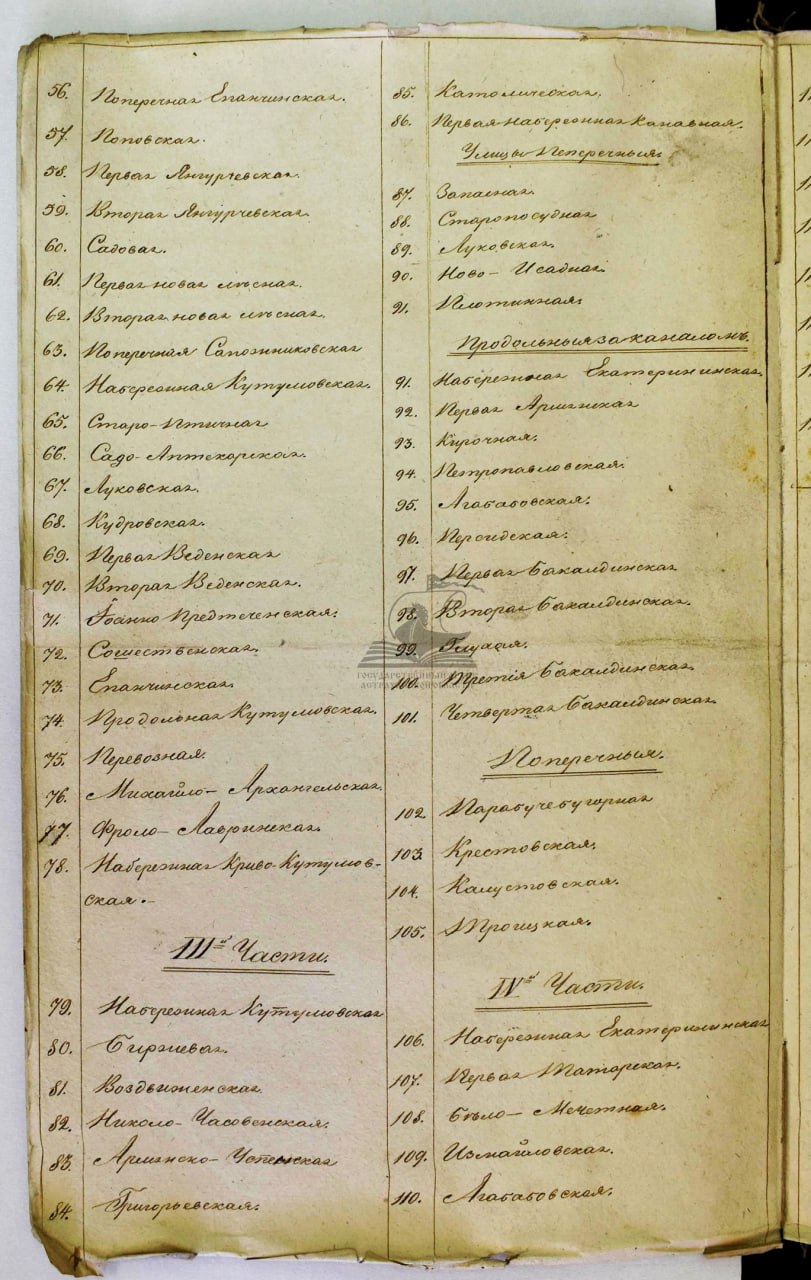 56. Поперечная Епанчинская.
57. Поповская.
58. Первая Янгурчевская.
59. Вторая Янгурчевская.
60. Садовая.
61. Первая новая лѣсная.
62. Вторая новая лѣсная.
63. Поперечная Сапожниковская
64. Набережная Кутумовская.
65. Старо-Птичная
66. Садо-Аптекарская.
67. Луковская.
68. Кудровская.
69. Первая Веденская
70. Вторая Веденская.
71. Іоанно Предтеченская.
72. Сошественская.
73. Епанчинская.
74. Продольная Кутумовская.
75. Перевозная.
76. Михайло-Архангельская.
77. Фроло-Лавринская.
78. Набережная Криво-Кутумов-
ская.-
IIIй Части.
79. Набережная Кутумовская
80. Биржевая.
81. Воздвиженская.
82. Николо-Часовенская.
83. Армянско-Успенская
84. Григорьевская.
85. Католическая.
86. Первая Набережная Канавная.
Улицы Поперечныя.
87. Запасная.
88. Старопосудная
89. Луковская.
90. Ново-Исадная.
91. Плотинная.
Продольныя за каналомъ.
91. Набережная Екатерининская.
92. Первая Армянская
93. Кирочная.
94. Петропавловская.
95. Агабабовская.
96. Персидская.
97. Первая Бакалдинская
98. Вторая Бакалдинская.
99. Глухая.
100. Третія Бакалдинская.
101. Четвертая Бакалдинская.
Поперечныя.
102. Паробичебугорная
103. Крестовская.
104. Калустовская.
105. Троицкая.
IVй Части.
106. Набережная Екатерининская
107. Первая Татарская.
108. Бѣло-Мечетная.
109. Измайловская.
110. Агабабовская.